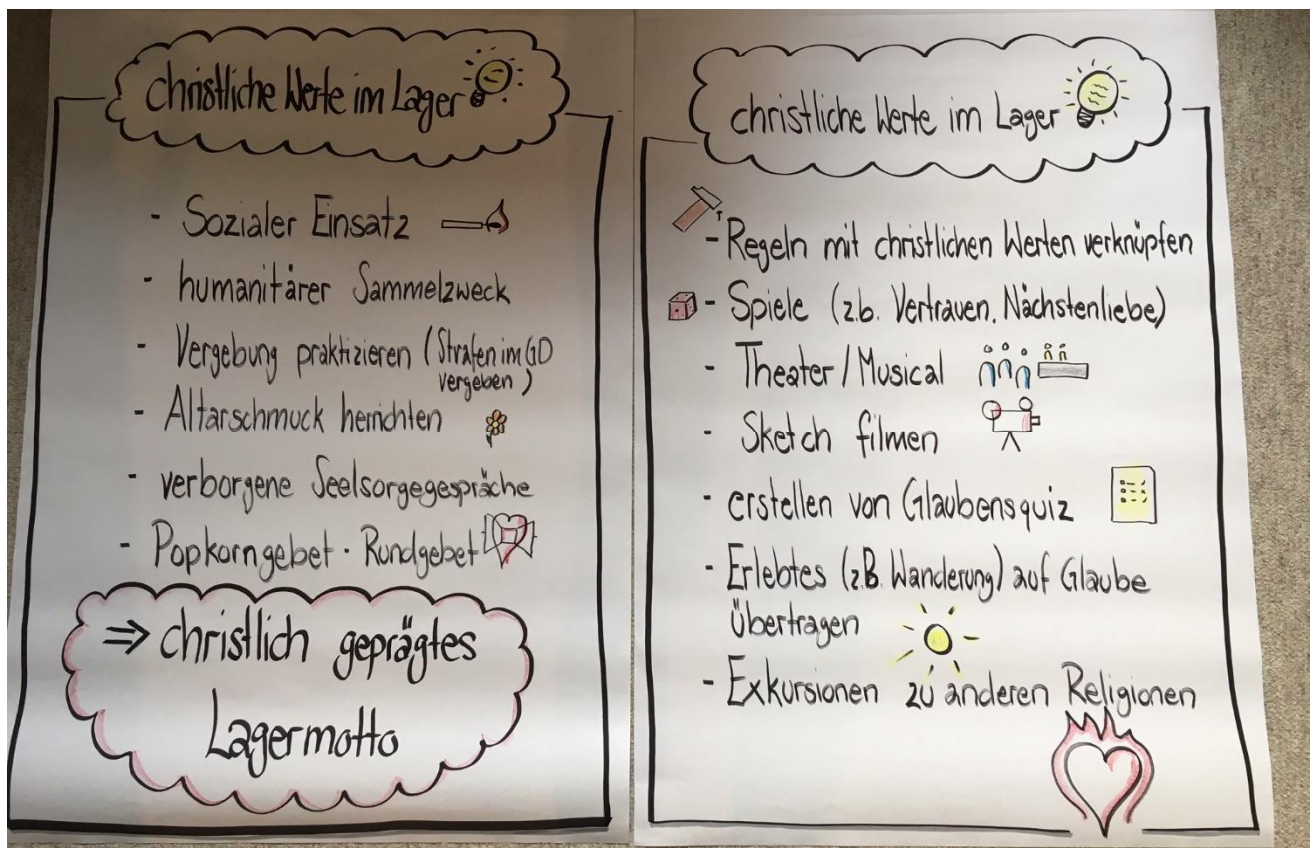 christliche Werte im Lager
- Sozialer Einsatz
- humanitärer Sammelzweck
- Vergebung praktizieren (Strafen im GD
vergeben)
- Altarschmuck herrichten
- verborgene Seelsorgegespräche
- Popkorngebet · Rundgebet
⇒ christlich geprägtes
Lagermotto
christliche Werte im Lager
- Regeln mit christlichen Werten verknüpfen
- Spiele (z.b. Vertrauen, Nächstenliebe)
- Theater / Musical
- Sketch filmen
- erstellen von Glaubensquiz
- Erlebtes (z.B. Wanderung) auf Glaube
Übertragen
- Exkursionen zu anderen Religionen